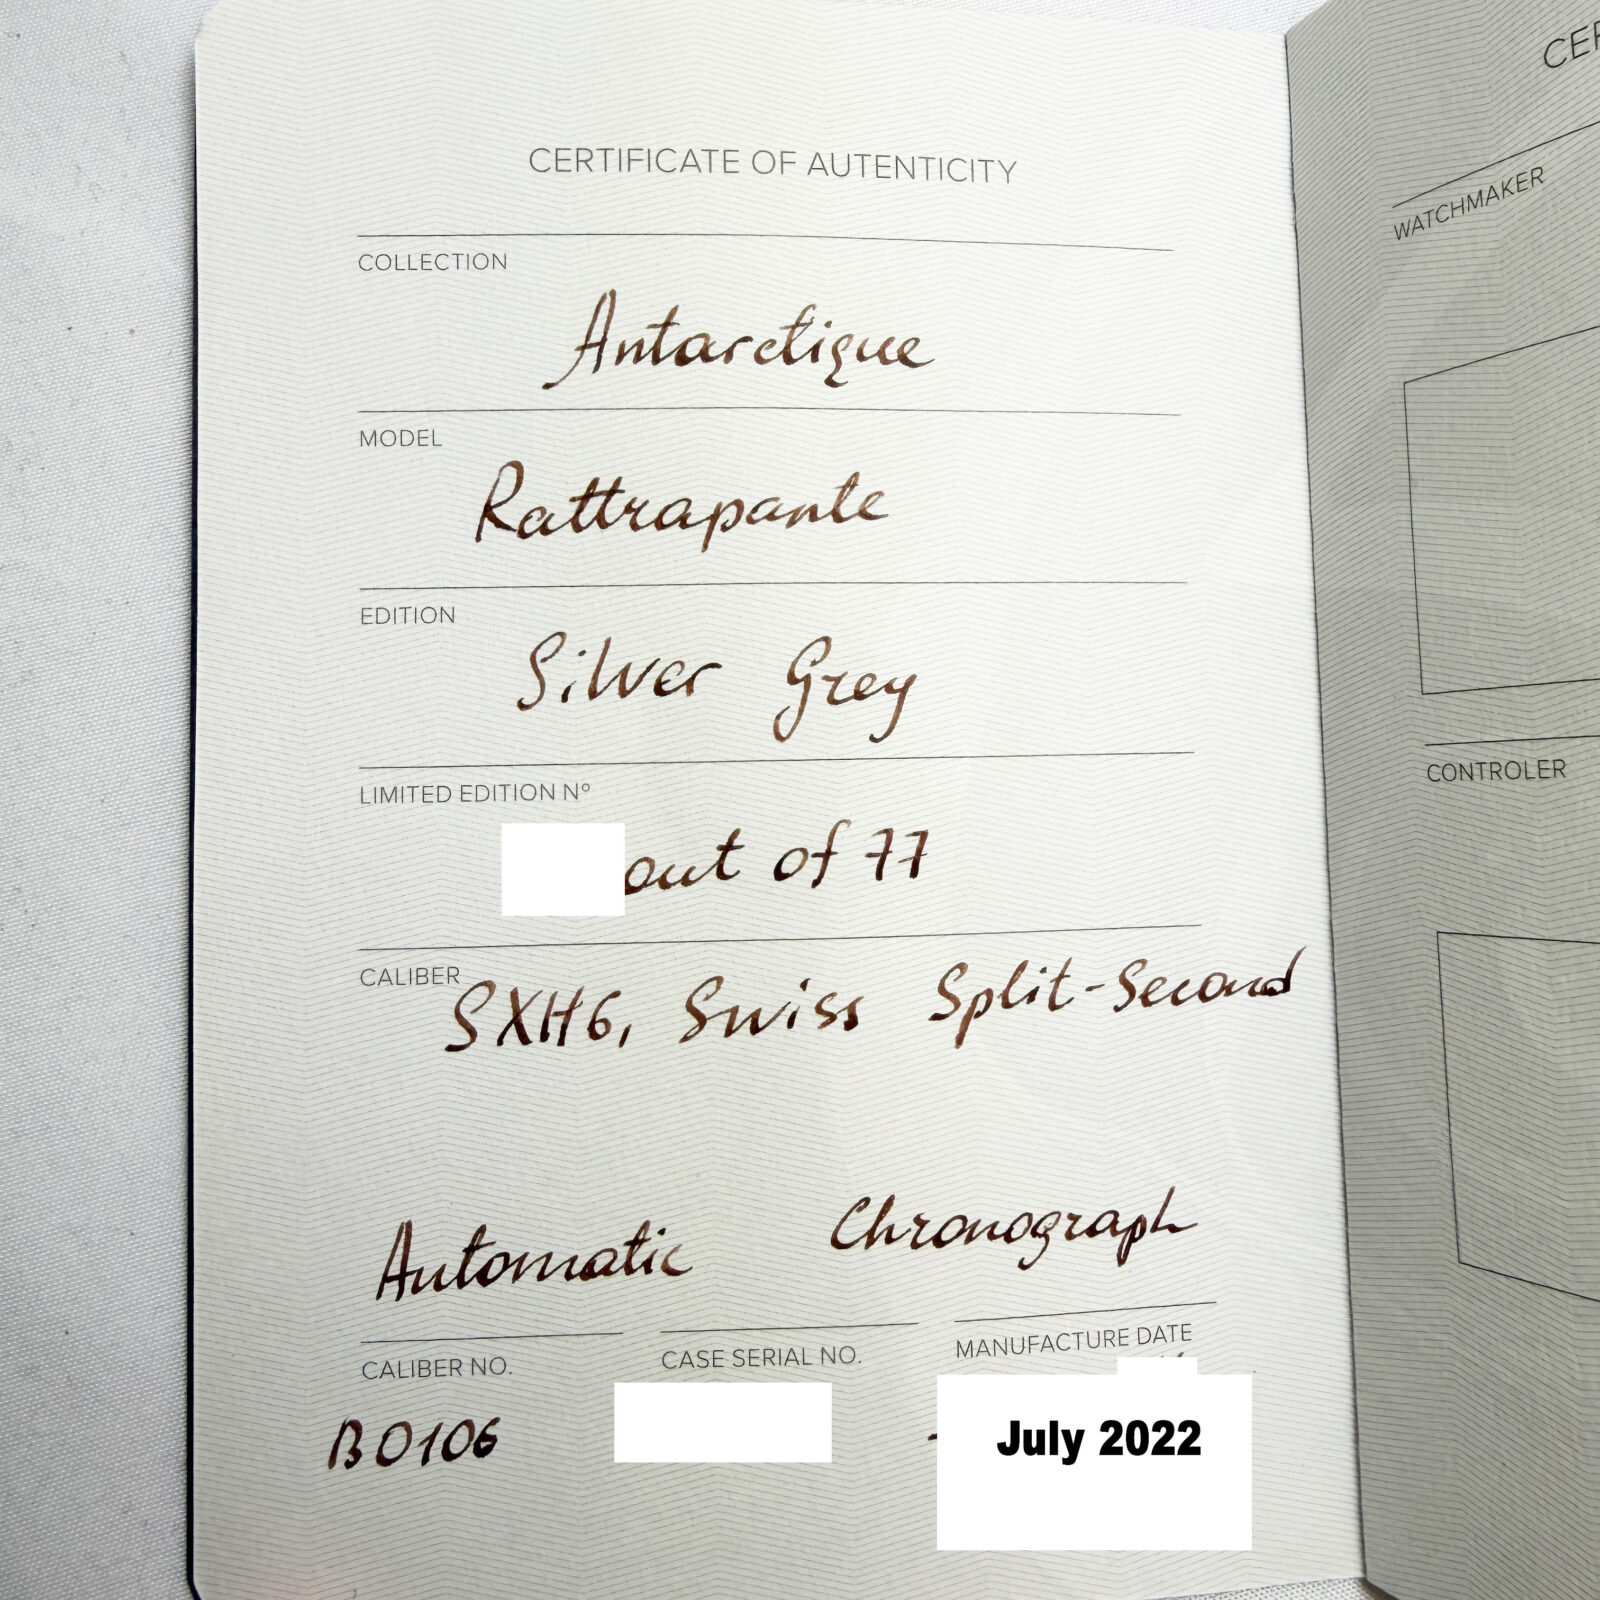 CERTIFICATE OF AUTENTICITY
COLLECTION
Antarctique
MODEL
Rattrapante
EDITION
Silver Grey
LIMITED EDITION Nº
out of 77
CALIBER
SXH6, Swiss Split-Second
Automatic Chronograph
CALIBER NO.
B0106
CASE SERIAL NO.
MANUFACTURE DATE
July 2022
CER
WATCHMAKER
CONTROLER